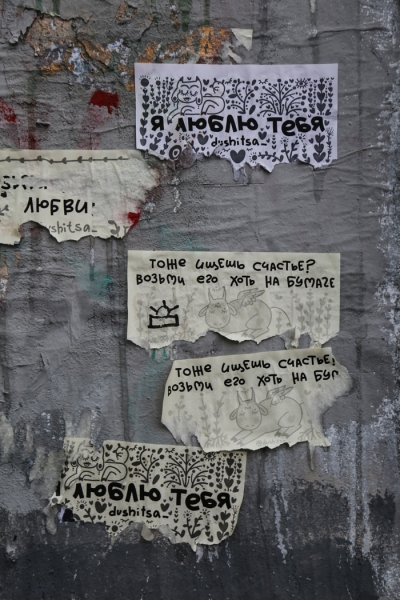 Я ЛЮБЛЮ ТЕБЯ
dushitsa_
ЛЮБВИ
shitsa_
ТОЖЕ ИЩЕШЬ СЧАСТЬЕ?
ВОЗЬМИ ЕГО ХОТЬ НА БУМАГЕ
ТОЖЕ ИЩЕШЬ СЧАСТЬЕ?
ВОЗЬМИ ЕГО ХОТЬ НА БУМ
ЛЮБЛЮ ТЕБЯ
dushitsa_